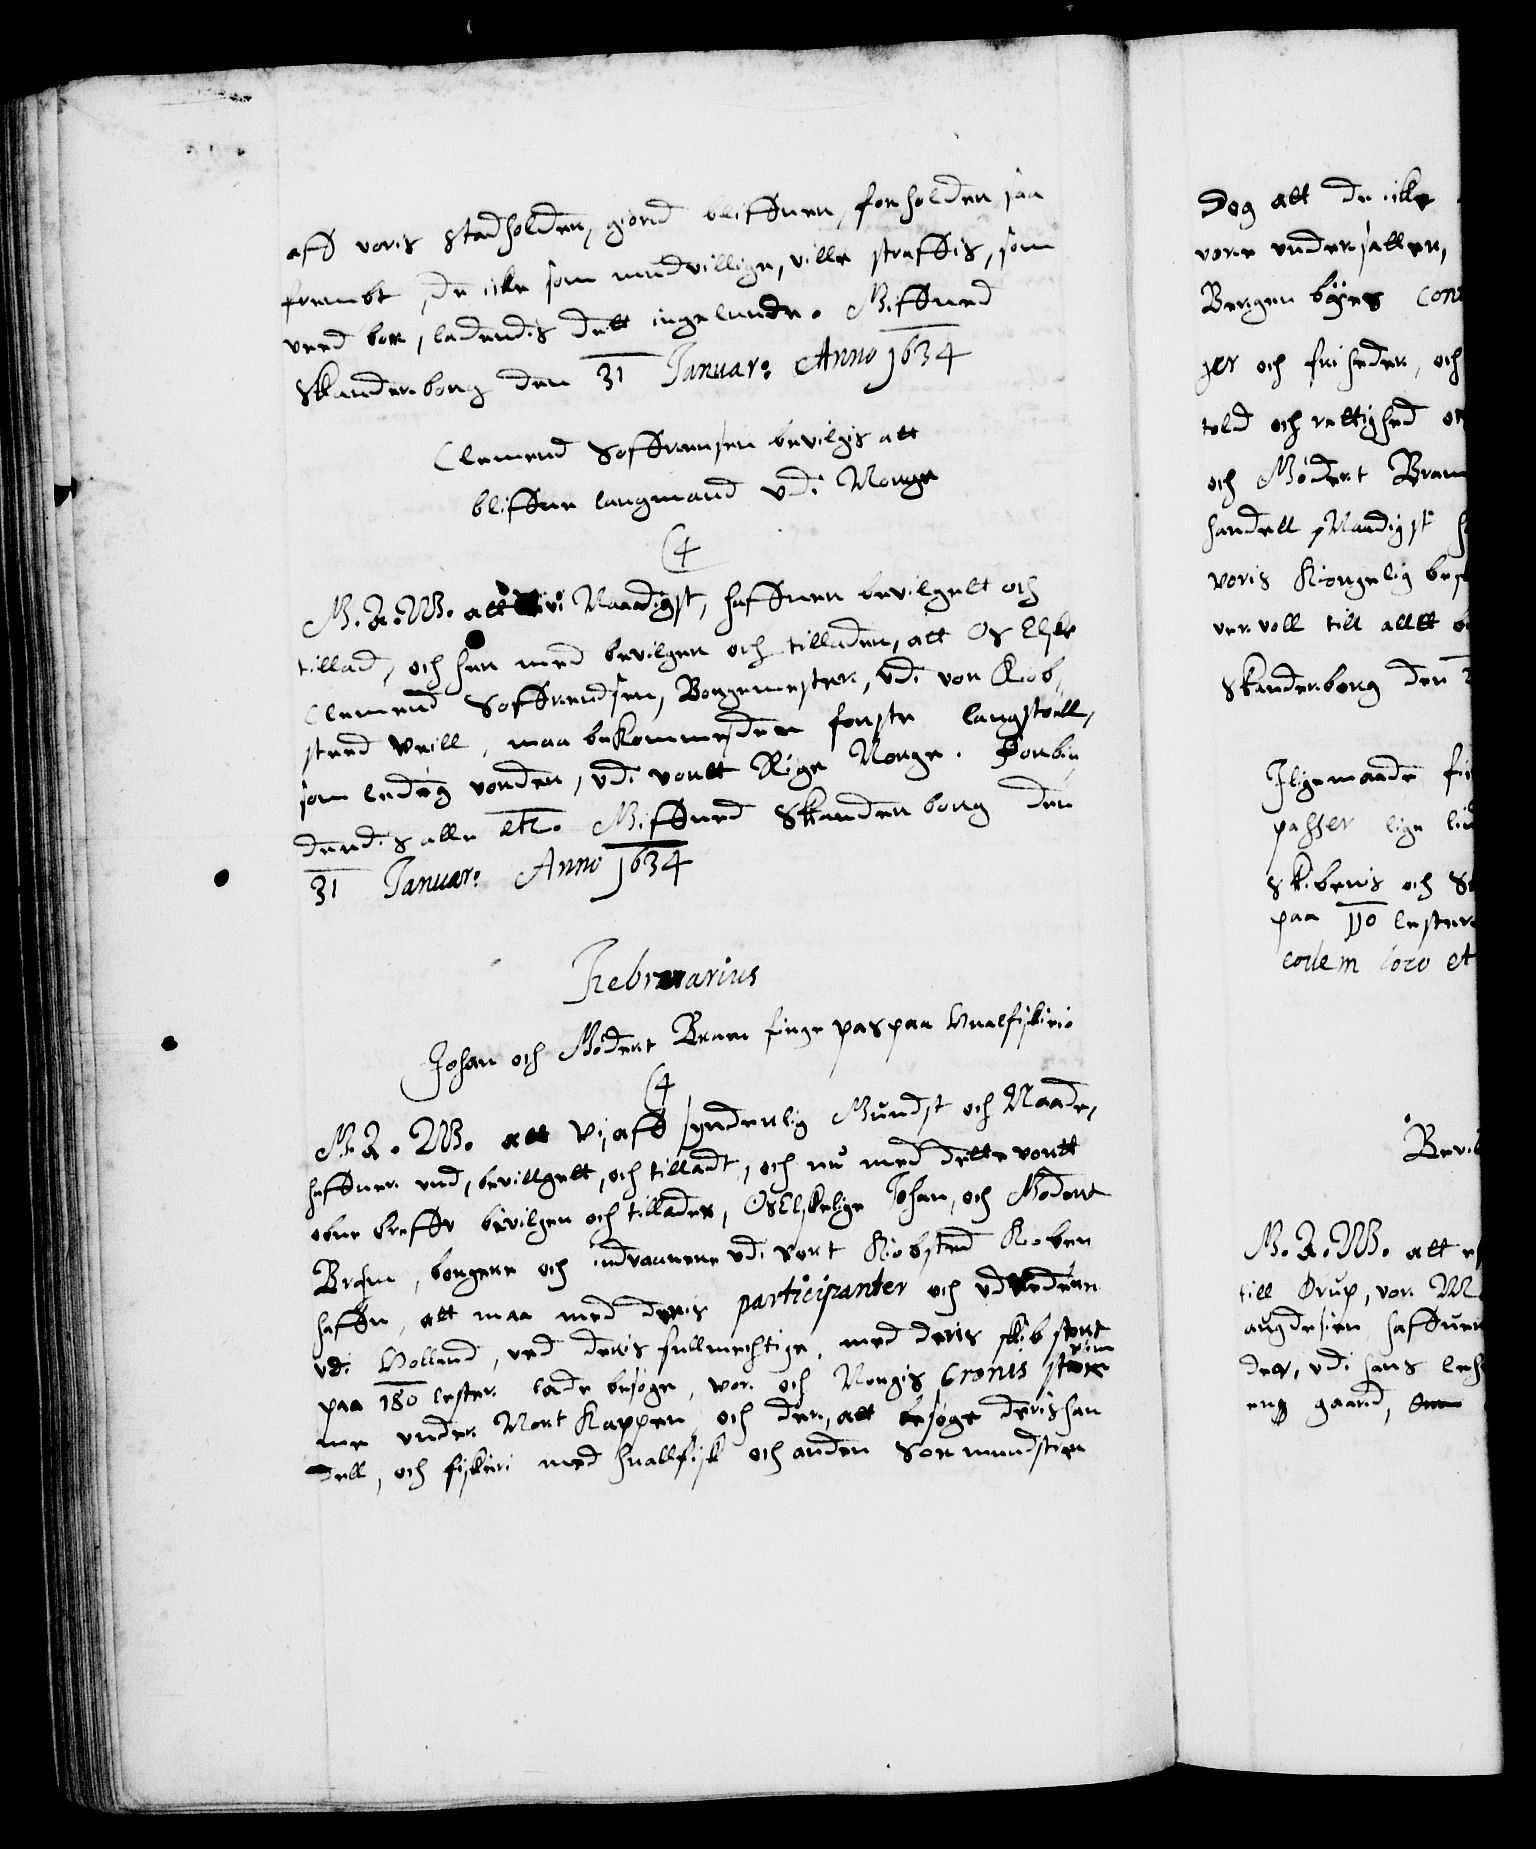 aff voris Stadholder, giord bliffuer, forholder saa
frembt, de icke som modvillige, ville straffis, som
vved bør, ladendis dett ingelunde. Giffued
Skanderborg den 31 Januar: Anno 1634
Clemend Soffrensen bevilgis att
bliffue laugmand vdi Norge
C4
G. A. W. att vi Naadigst, haffuer bevilgett och
tillad, och her med bevilger och tillader, att Os Elske
Clemend Soffrendsen, Borgemester, vdi vor Kiøb,
sted Weill, maa bekomme den første laugstoll,
som ledig vorder, vdi vortt Rige Norge. Forbiu
dendis alle etc. Giffued Skanderborg den
31 Januar: Anno 1634
Februarius
Johan och Gødert Bram finge pas paa Hualfiskeri
C4
G. A. W. att Vi aff synderlig Gundst och Naade,
haffuer und, bevillgett, och tilladt, och nu med dette vortt
obne breff bevilger och tillader, Os Elskelige Johan, och Gødert
Bram, borgere och indvaanere vdi vort Kiøbsted Kiøben
haffn, att maa med deris participanter och udreder
vdi Holland, ved deris fullmechtige, med deris skib stort
paa 180 lester lade besøge, vor och Norgis Cronis strøm
me under Nort Kappen, och der, att besøge deris han
dell, och fiskeri med huallfisk och anden Soe mundster
Dog att de icke
vore undersatter,
Bergen byes con
ger och friheder, och
told och rettighed
och Gødert Bram
handell Naadigst
voris Kiongelig besk
vervoll till allt
Skanderborg den
Iligemaade
passer lige
Skiberis och
paa 110 lester
eodem loco et
Bevil
G. A. W. att
till Ørup, vor M
augdesien haffuer
der, vdi hans lehn
eng gaard,